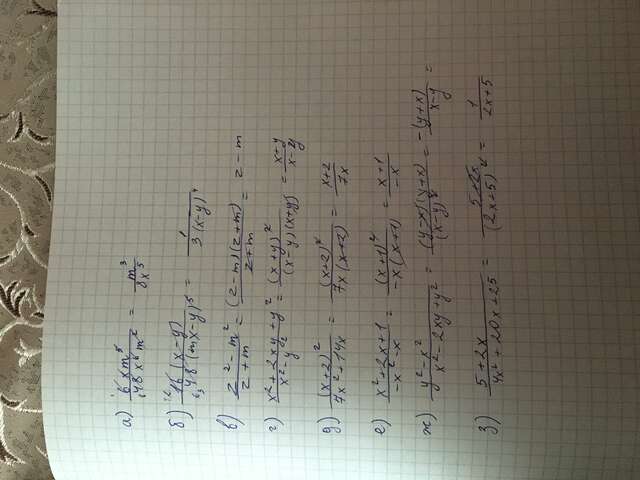 а) 6xm⁵/48x⁶m² = m³/8x⁵
б) 16(x-y)/48(x-y)⁵ = 1/3(x-y)⁴
в) z²-m²/z+m = (z-m)(z+m)/z+m = z-m
г) x²+2xy+y²/x²-y² = (x+y)²/(x-y)(x+y) = x+y/x-y
д) (x+2)²/7x²+14x = (x+2)²/7x(x+2) = x+2/7x
е) x²+2x+1/-x²-x = (x+1)²/-x(x+1) = x+1/-x
ж) y²-x²/x²-2xy+y² = (y-x)(y+x)/(x-y)² = -(y+x)/x-y =
з) 5+2x/4x²+20x+25 = 5+2x/(2x+5)² = 1/2x+5